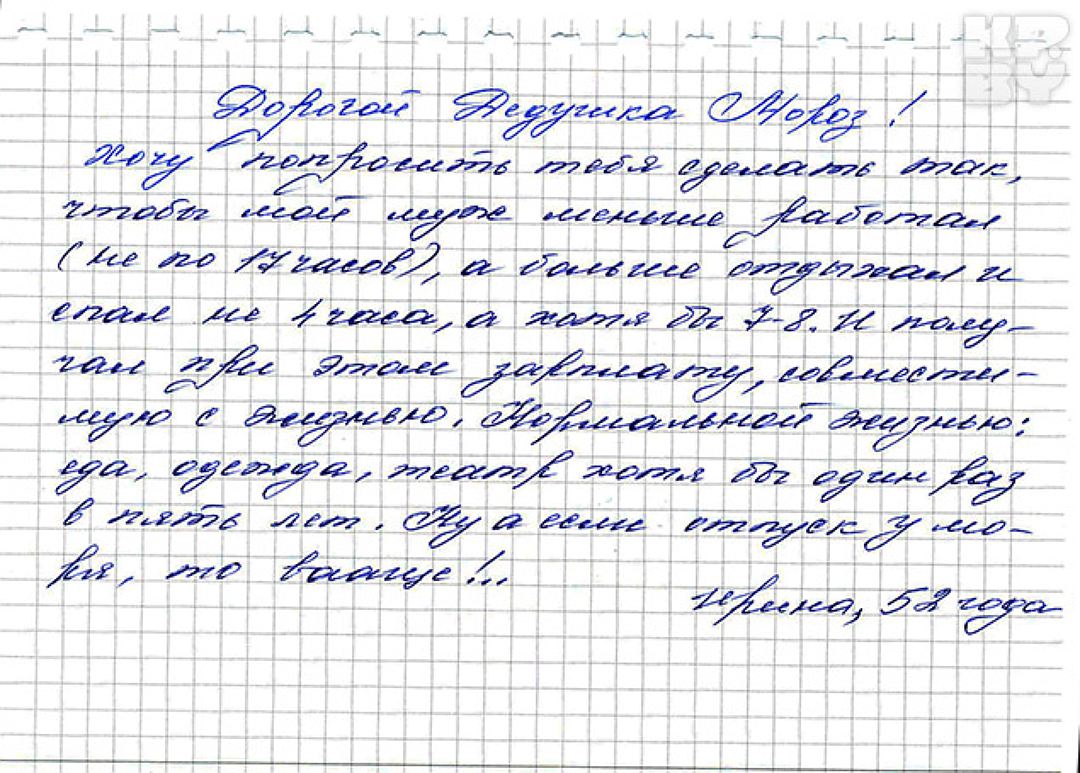 КР.
BY
Дорогой Дедушка Мороз!
Хочу попросить тебя сделать так,
чтобы мой муж меньше работал
(не по 17 часов), а больше отдыхал и
спал не 4 часа, а хотя бы 7-8. И полу-
чал при этом зарплату, совмести-
мую с жизнью. Нормальной жизнью:
еда, одежда, театр хотя бы один раз
в пять лет. Ну а если отпуск у мо-
ря, то ваще!..
Ирина, 52 года